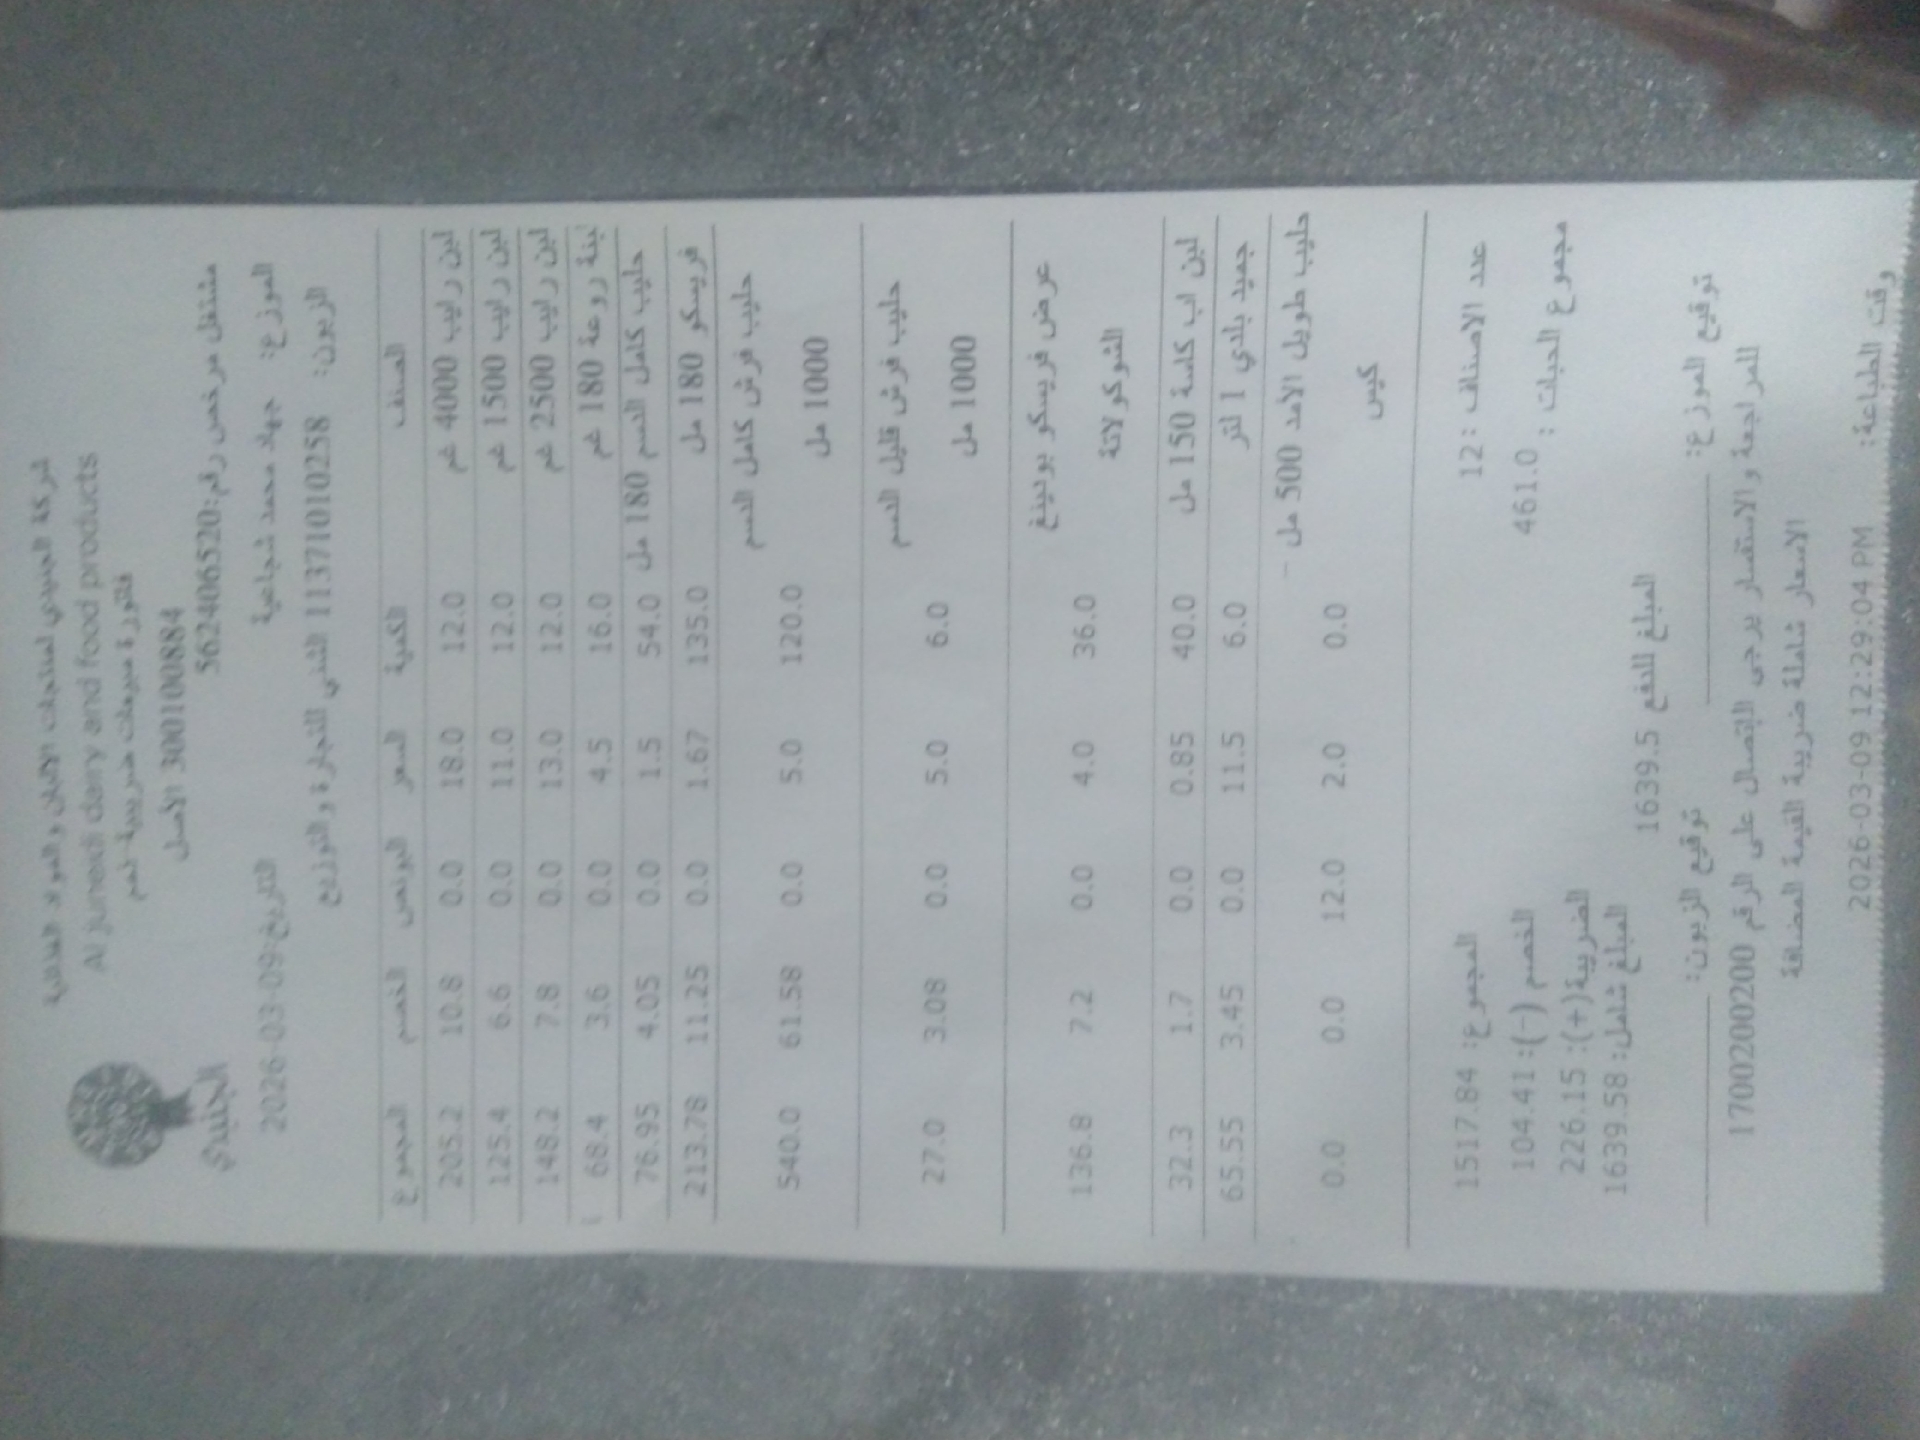 شركة الجنيدي لمنتجات الألبان والمواد الغذائية
Al juneidi dairy and food products
فاتورة مبيعات ضريبية ذمم
300100884 الاصل
مشتغل مرخص رقم:562406520
الجنيدي
الموزع: جهاد محمد شجاعية التاريخ:2026-03-09
الزبون: 1137101010258 الشني للتجارة و التوزيع
الصنف الكمية السعر البونص الخصم المجموع
لبن رايب 4000 غم 12.0 18.0 0.0 10.8 205.2
لبن رايب 1500 غم 12.0 11.0 0.0 6.6 125.4
لبن رايب 2500 غم 12.0 13.0 0.0 7.8 148.2
لبنة روعة 180 غم 16.0 4.5 0.0 3.6 68.4
حليب كامل الدسم 180 مل 54.0 1.5 0.0 4.05 76.95
فريسكو 180 مل 135.0 1.67 0.0 11.25 213.78
حليب فرش كامل الدسم 120.0 5.0 0.0 61.58 540.0
1000 مل
حليب فرش قليل الدسم 6.0 5.0 0.0 3.08 27.0
1000 مل
عرض فريسكو بودينغ 36.0 4.0 0.0 7.2 136.8
الشوكولاتة
لبن اب كاسة 150 مل 40.0 0.85 0.0 1.7 32.3
جميد بلدي 1 لتر 6.0 11.5 0.0 3.45 65.55
حليب طويل الامد 500 مل - 0.0 2.0 12.0 0.0 0.0
كيس
عدد الاصناف : 12 المجموع: 1517.84
مجموع الحبات : 461.0 الخصم (-): 104.41
الضريبة(+): 226.15
المبلغ شامل: 1639.58
المبلغ للدفع 1639.5
توقيع الموزع: توقيع الزبون:
للمراجعة والاستفسار يرجى الإتصال على الرقم 1700200200
الاسعار شاملة ضريبة القيمة المضافة
وقت الطباعة: 2026-03-09 12:29:04 PM